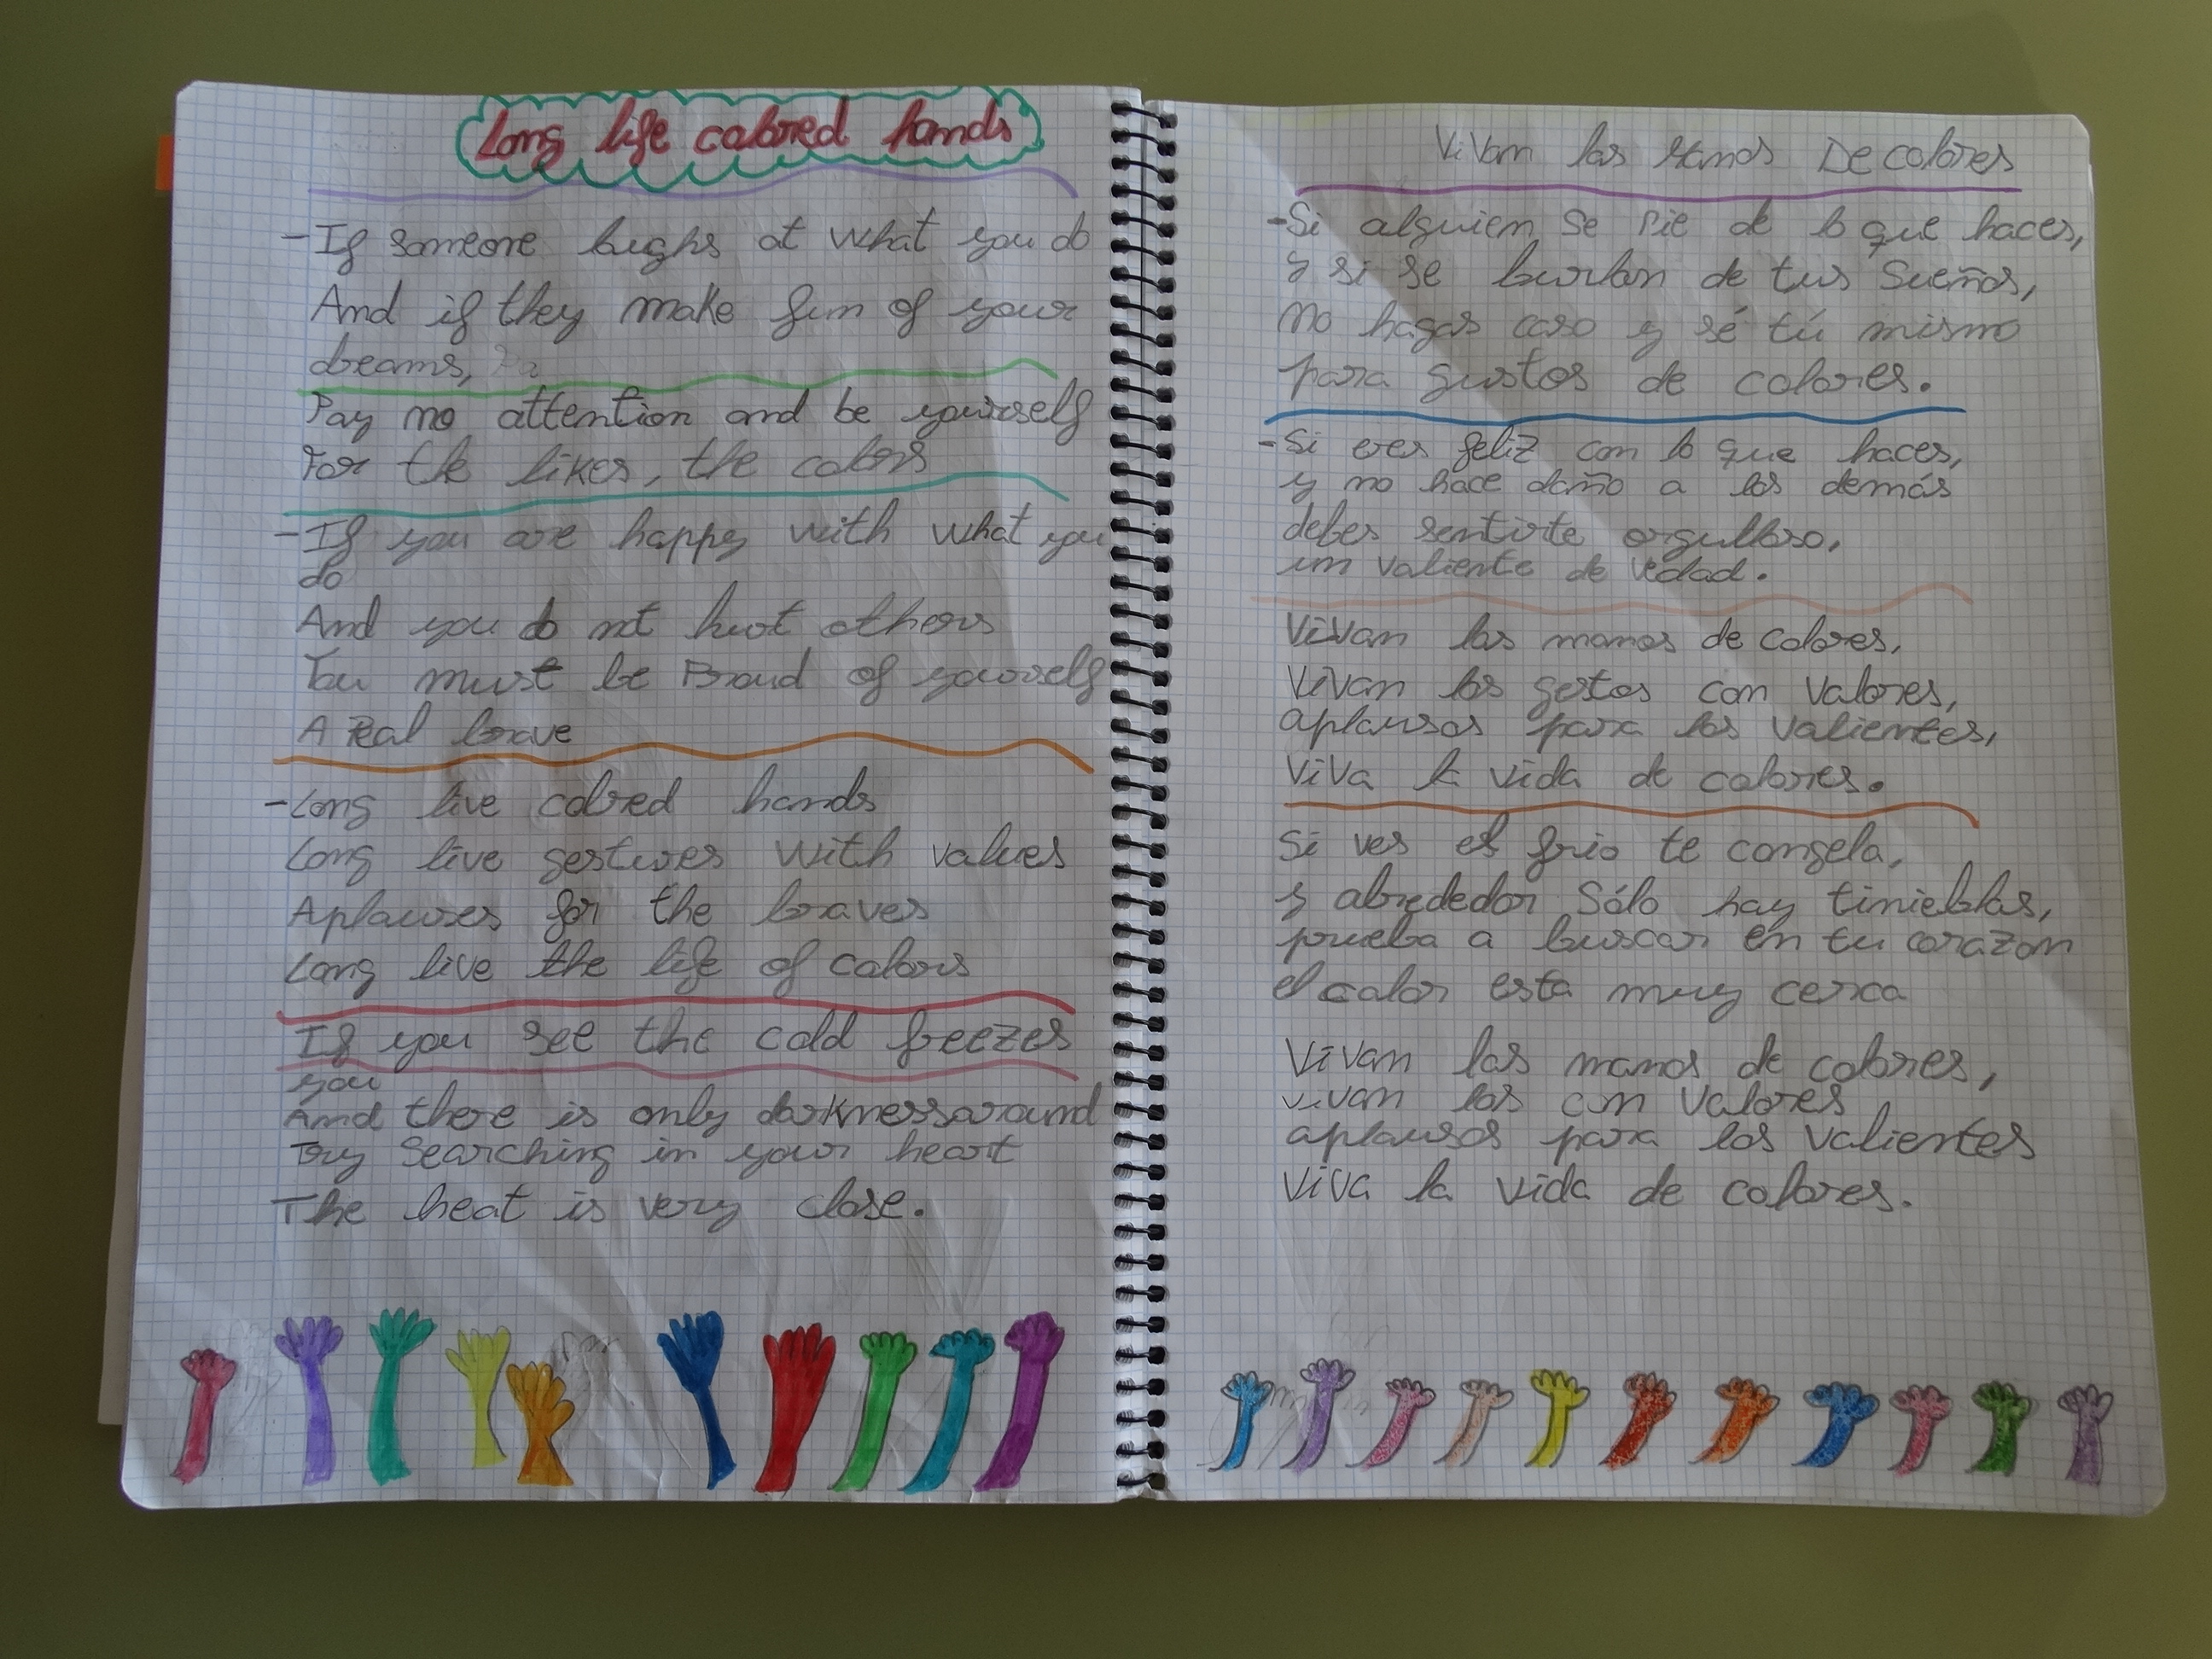 Long life colored hands
-If someone laughs at what you do
And if they make fun of your
dreams,
Pay no attention and be yourself
For the likes, the colors
-If you are happy with what you
do
And you do not hurt others
You must be Proud of yourself
A Real brave
-Long live colored hands
Long live gestures with values
Aplauses for the braves
Long live the life of colors
If you see the cold freezes
you
And there is only darkness around
Try searching in your heart
The heat is very close.
ViVan las Manos De colores
-Si alguien se rie de lo que haces,
y si se burlan de tus sueños,
no hagas caso y sé tú mismo
para gustos de colores.
-Si eres feliz con lo que haces,
y no hace daño a los demás
debes sentirte orgulloso,
un valiente de vedad.
ViVan las manos de colores,
ViVan los gestos con valores,
aplausos para los valientes,
ViVa la vida de colores.
Si ves el frio te congela,
y alrededor Sólo hay tinieblas,
prueba a buscar en tu corazon
el calor esta muy cerca
ViVan las manos de colores,
vivan los con Valores
aplausos para los valientes
ViVa la vida de colores.